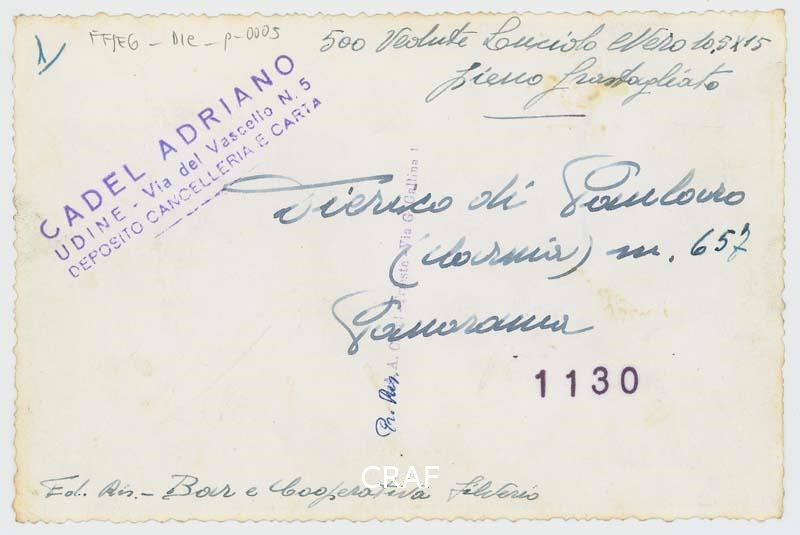 1
FFPEG - DIC - P-0005
500 Vedute Lucido e Nero 10,5x15
pieno frastagliato
CADEL ADRIANO
UDINE - Via del Vascello N. 5
DEPOSITO CANCELLERIA E CARTA
Dierico di Paularo
(Carnia) m. 657
Panorama
A. Trieste - Via G. Gallina 1
Pr. Ris.
1130
Ed. Ris. - Bar e Cooperativa Silverio
CRAF